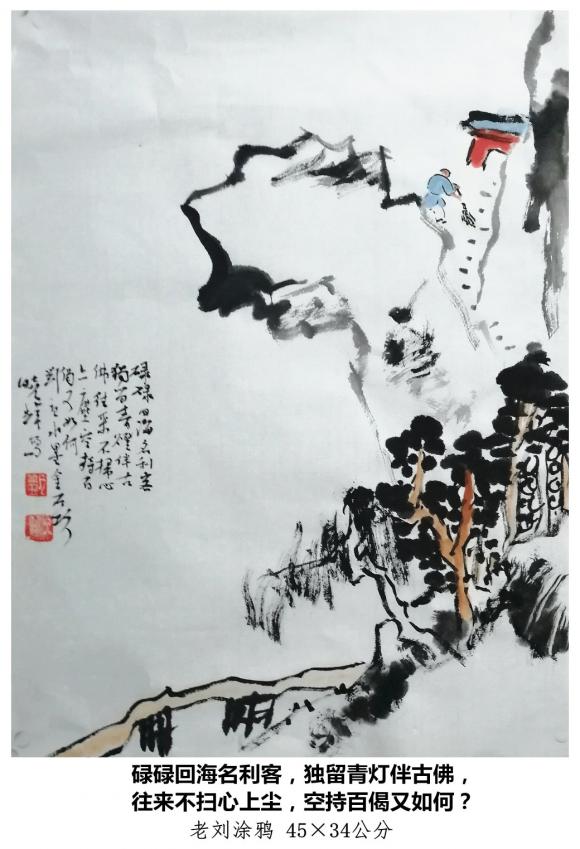 碌碌回海名利客
獨留青燈伴古
佛往来不掃心
上塵空持百
偈又如何
碌碌回海名利客，独留青灯伴古佛，
往来不扫心上尘，空持百偈又如何？
老刘涂鸦 45×34公分